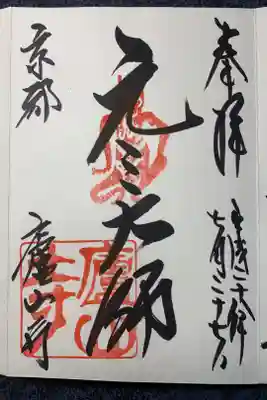 奉拝
平成
七月二十七日
元三大師
京都
廬山寺
廬山寺